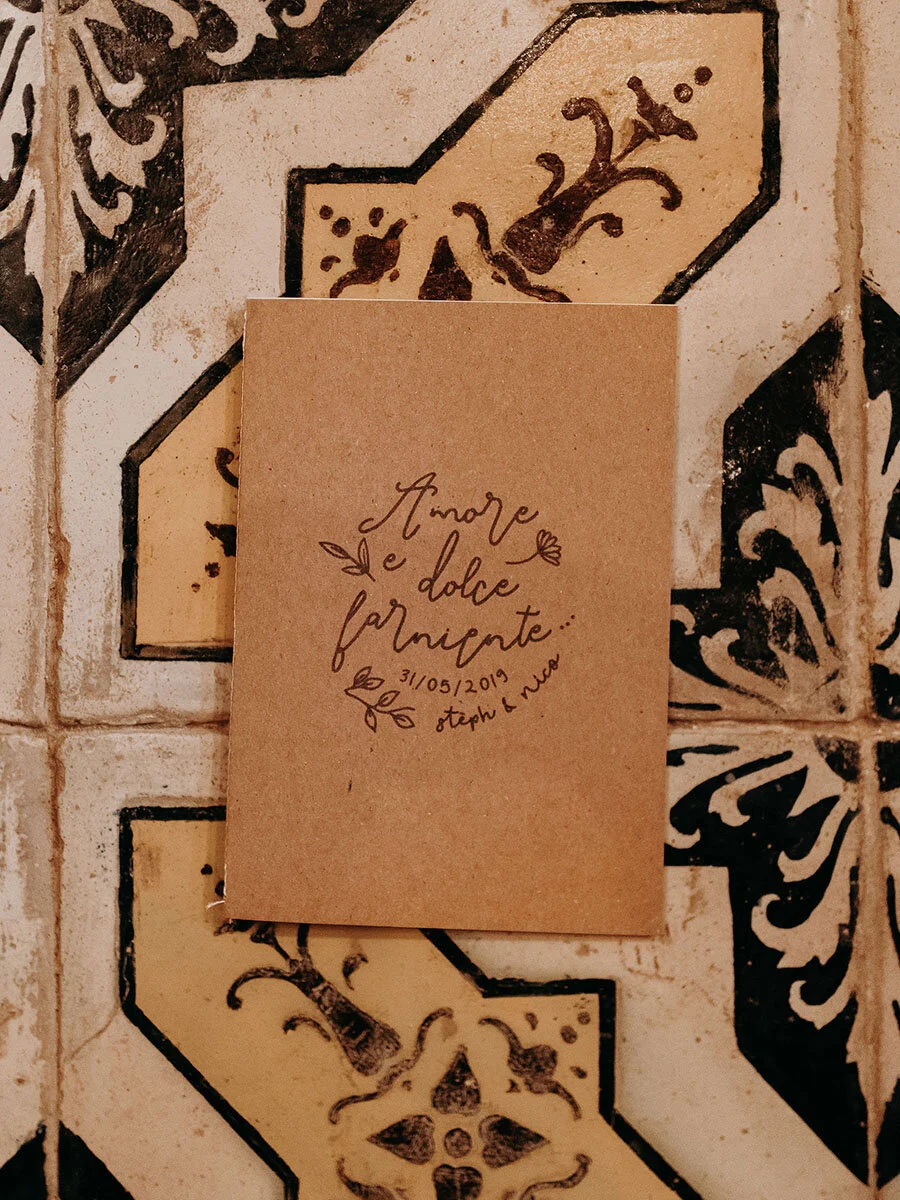 Amore
e dolce
farniente...
31/05/2019
steph & nico